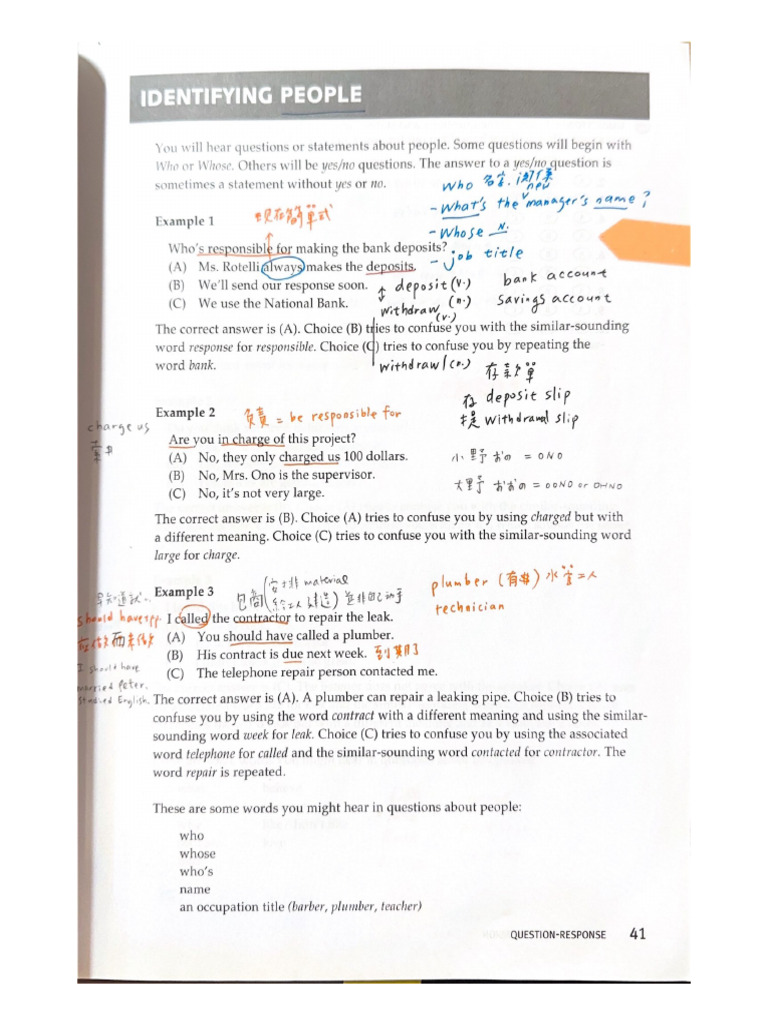 IDENTIFYING PEOPLE
You will hear questions or statements about people. Some questions will begin with
Who or Whose. Others will be yes/no questions. The answer to a yes/no question is
sometimes a statement without yes or no.
who 名字.
new
- What's the manager's name?
- Whose N.
- job title
Example 1
現在簡單式
Who's responsible for making the bank deposits?
(A) Ms. Rotelli always makes the deposits.
(B) We'll send our response soon.
(C) We use the National Bank.
deposit (v.)
(n.)
withdraw
(v.)
withdrawl (n.)
bank account
savings account
The correct answer is (A). Choice (B) tries to confuse you with the similar-sounding
word response for responsible. Choice (C) tries to confuse you by repeating the
word bank.
存款單
存 deposit slip
提 withdrawal slip
Example 2
負責 = be responsible for
charge us
Are you in charge of this project?
(A) No, they only charged us 100 dollars.
(B) No, Mrs. Ono is the supervisor.
(C) No, it's not very large.
小野 おの = ONO
大野 おおの = OONO or OHNO
The correct answer is (B). Choice (A) tries to confuse you by using charged but with
a different meaning. Choice (C) tries to confuse you with the similar-sounding word
large for charge.
Example 3
包商
安排 material
plumber (有#) 水管工人
technician
早知道就..
should have pp.
應做而未做
I should have
married Peter.
studied English.
I called the contractor to repair the leak.
(A) You should have called a plumber.
(B) His contract is due next week. 到期了
(C) The telephone repair person contacted me.
The correct answer is (A). A plumber can repair a leaking pipe. Choice (B) tries to
confuse you by using the word contract with a different meaning and using the similar-
sounding word week for leak. Choice (C) tries to confuse you by using the associated
word telephone for called and the similar-sounding word contacted for contractor. The
word repair is repeated.
These are some words you might hear in questions about people:
who
whose
who's
name
an occupation title (barber, plumber, teacher)
QUESTION-RESPONSE 41